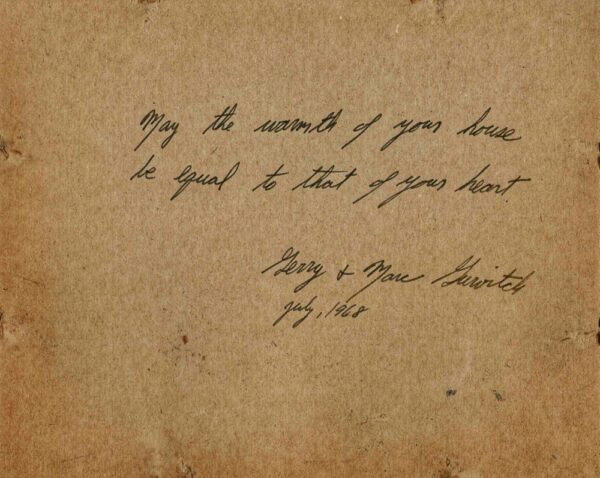 May the warmth of your house
be equal to that of your heart.
Gerry & Marc Gurvitch
July, 1968